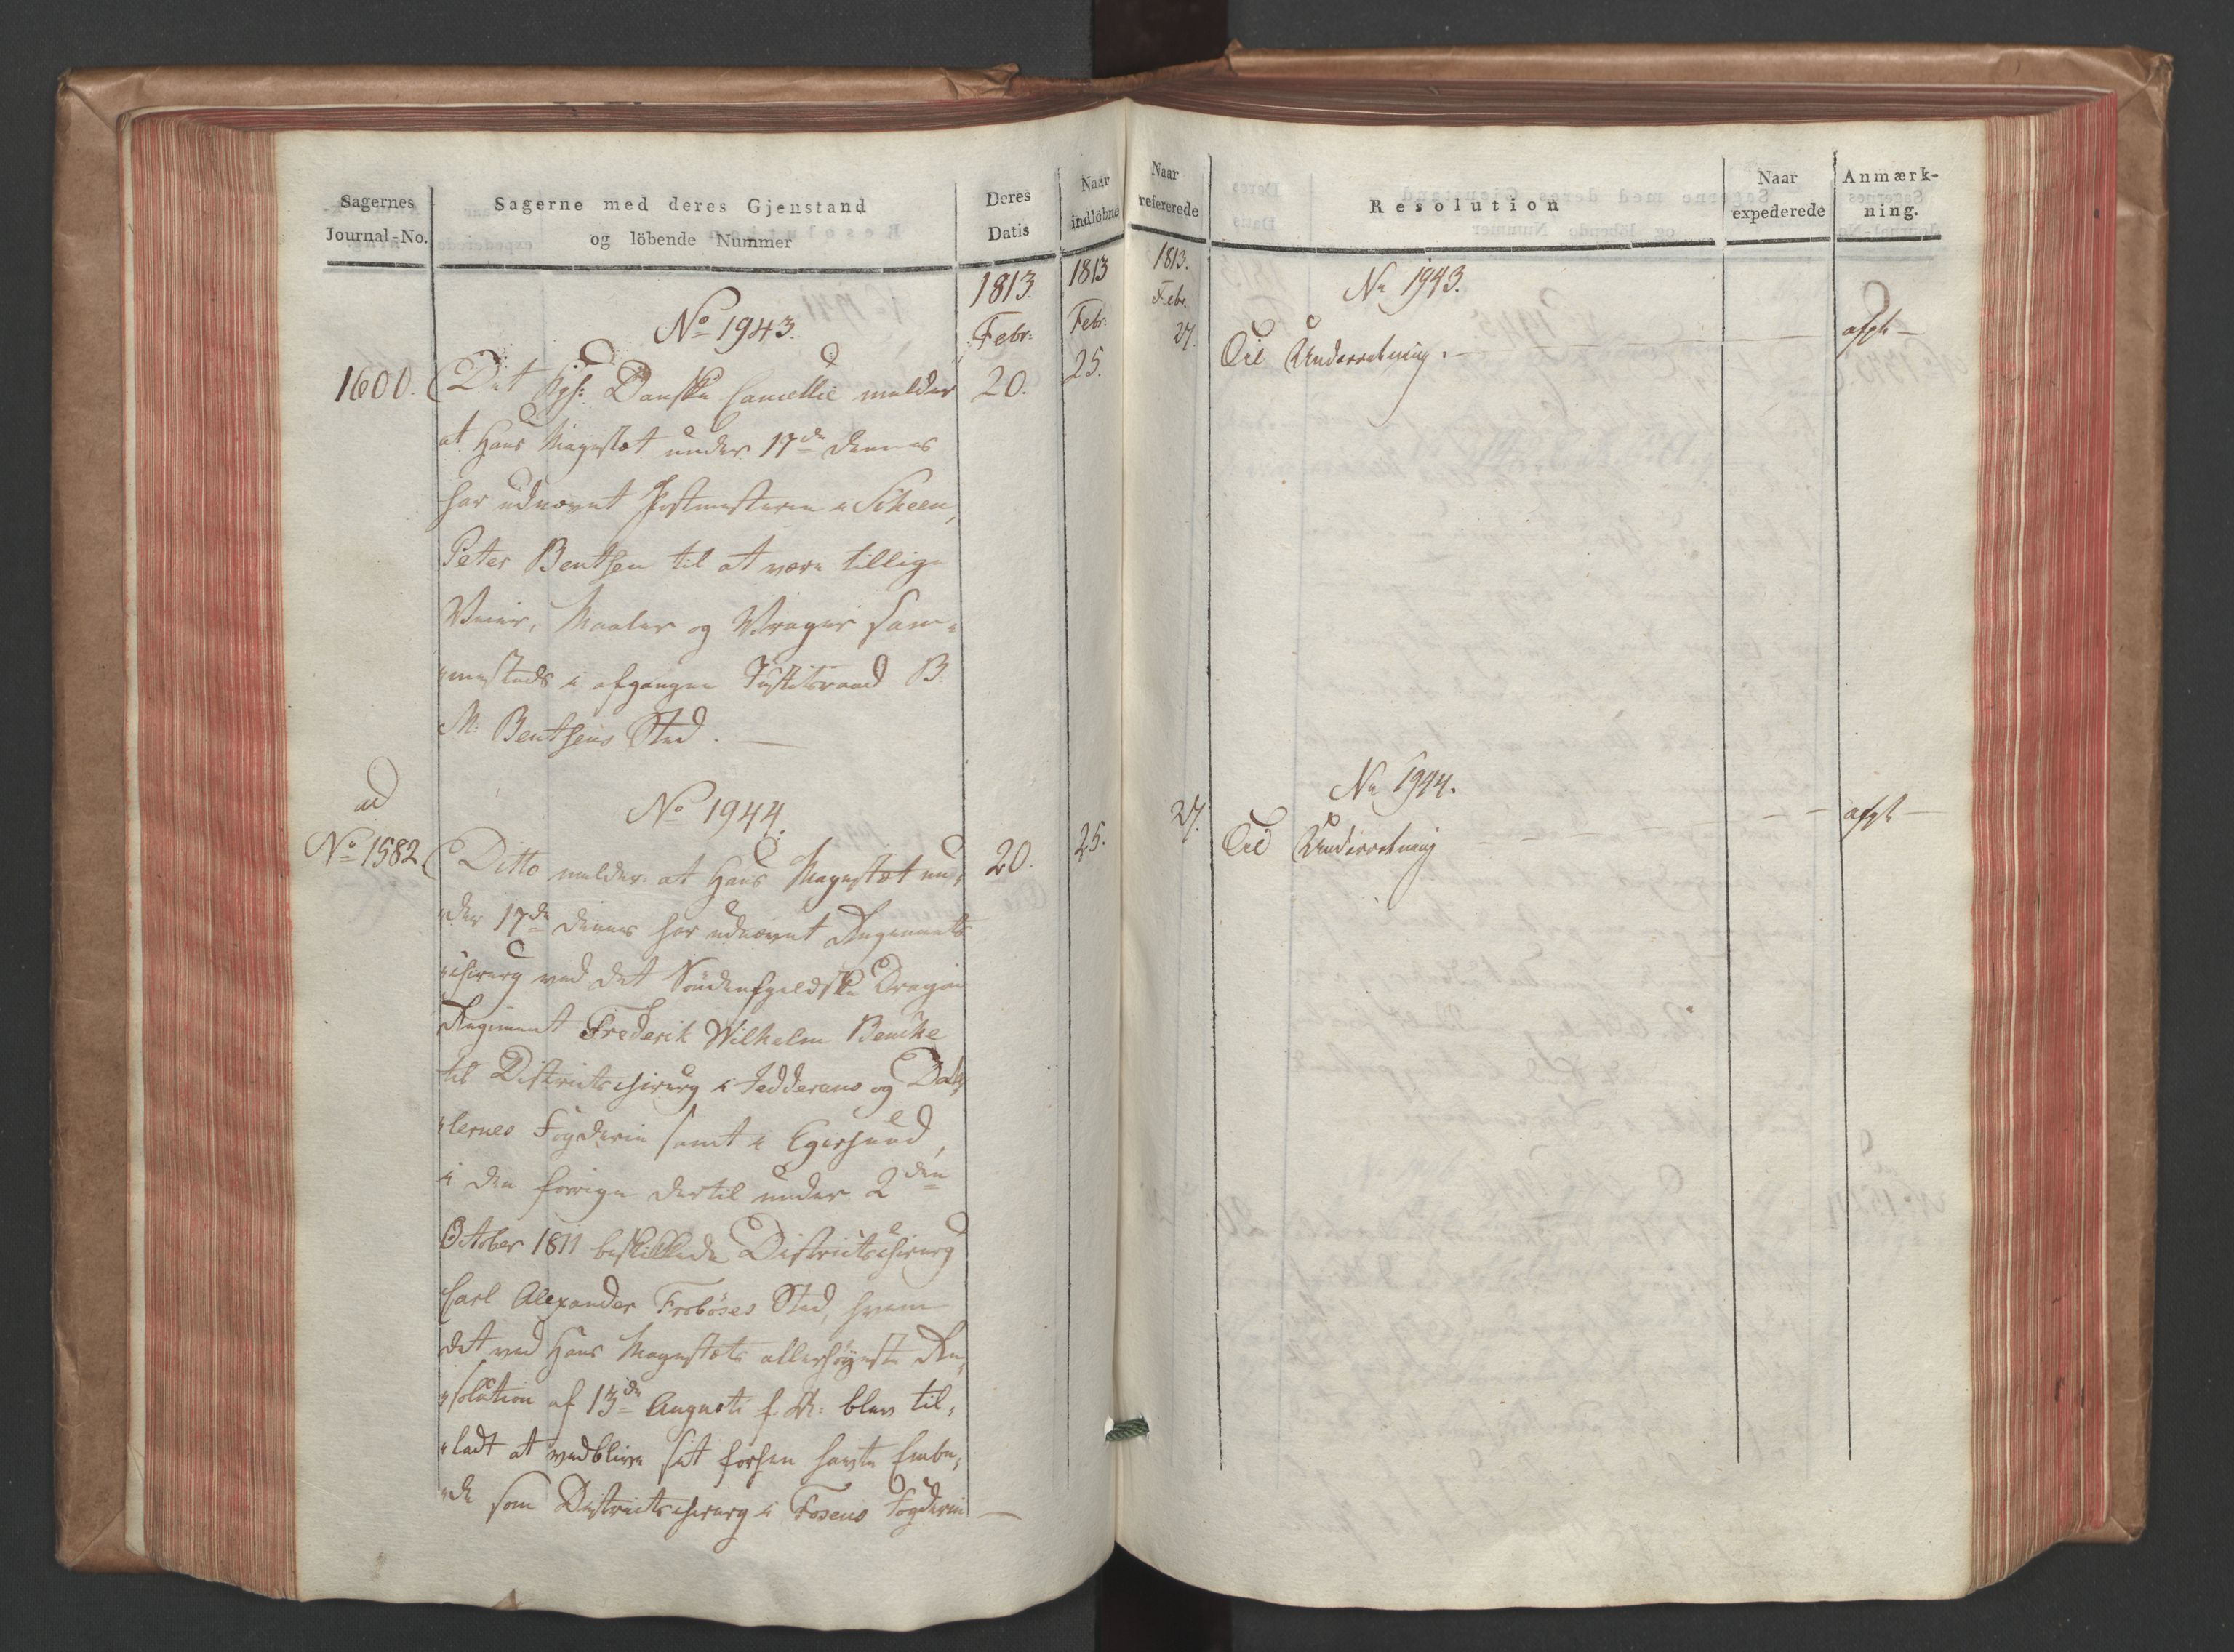 Sagernes
Journal-No.
Sagerne med deres Gjenstand
og löbende Nummer
Deres
Datis
Naar
indlöbne
1813.
Febr:
1813
Febr:
No 1943.
1600.
Det Kgl: Danske Cancellie melder
20.
25.
at Hans Majestæt under 17de dennes
har udnævnt Postmesteren i Scheen,
Peter Benthen til at være tillige
Veier, Maaler og Vrager sam-
menstæds i afgangne Justitsraad B.
M. Benthens Sted.
ad
No 1944.
No 1582
Ditto melder at Hans Majestæt un-
20.
25.
der 17de dennes har udnævnt Regiments-
chirurg ved det Søndenfjeldske Dragon
Regiment Frederik Wilhelm Bencke
til Districtschirurg i Jedderens og Dal-
lernes Fogderie samt i Egersund,
i den forrige dertil under 2den
October 1811 beskikkede Districtschirurg
Carl Alexander Froböses Sted, hvem
det ved Hans Majestæts allerhøyeste Re-
solution af 13de Augusti f. A: blev til-
ladt at vedblive sit forhen havte Embe-
de som Districtschirurg i Fosens Fogderie
Naar
refererede
Resolution
Naar
expederede
Anmærk-
ning.
1813.
Febr.
No 1943.
27.
Til Underretning.
afgh
No 1944.
27.
Til Underretning
afgh